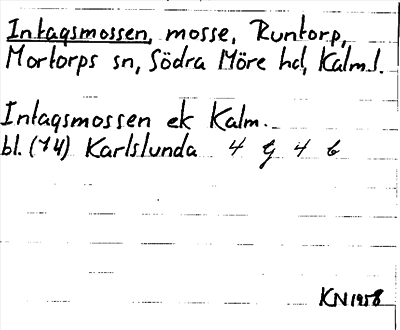 Intagsmossen, mosse, Runtorp,
Mortorps sn, Södra Möre hd, Kalm. l.
Intagsmossen ek Kalm.
bl. (74) Karlslunda 4 G 4 b
KN 1958